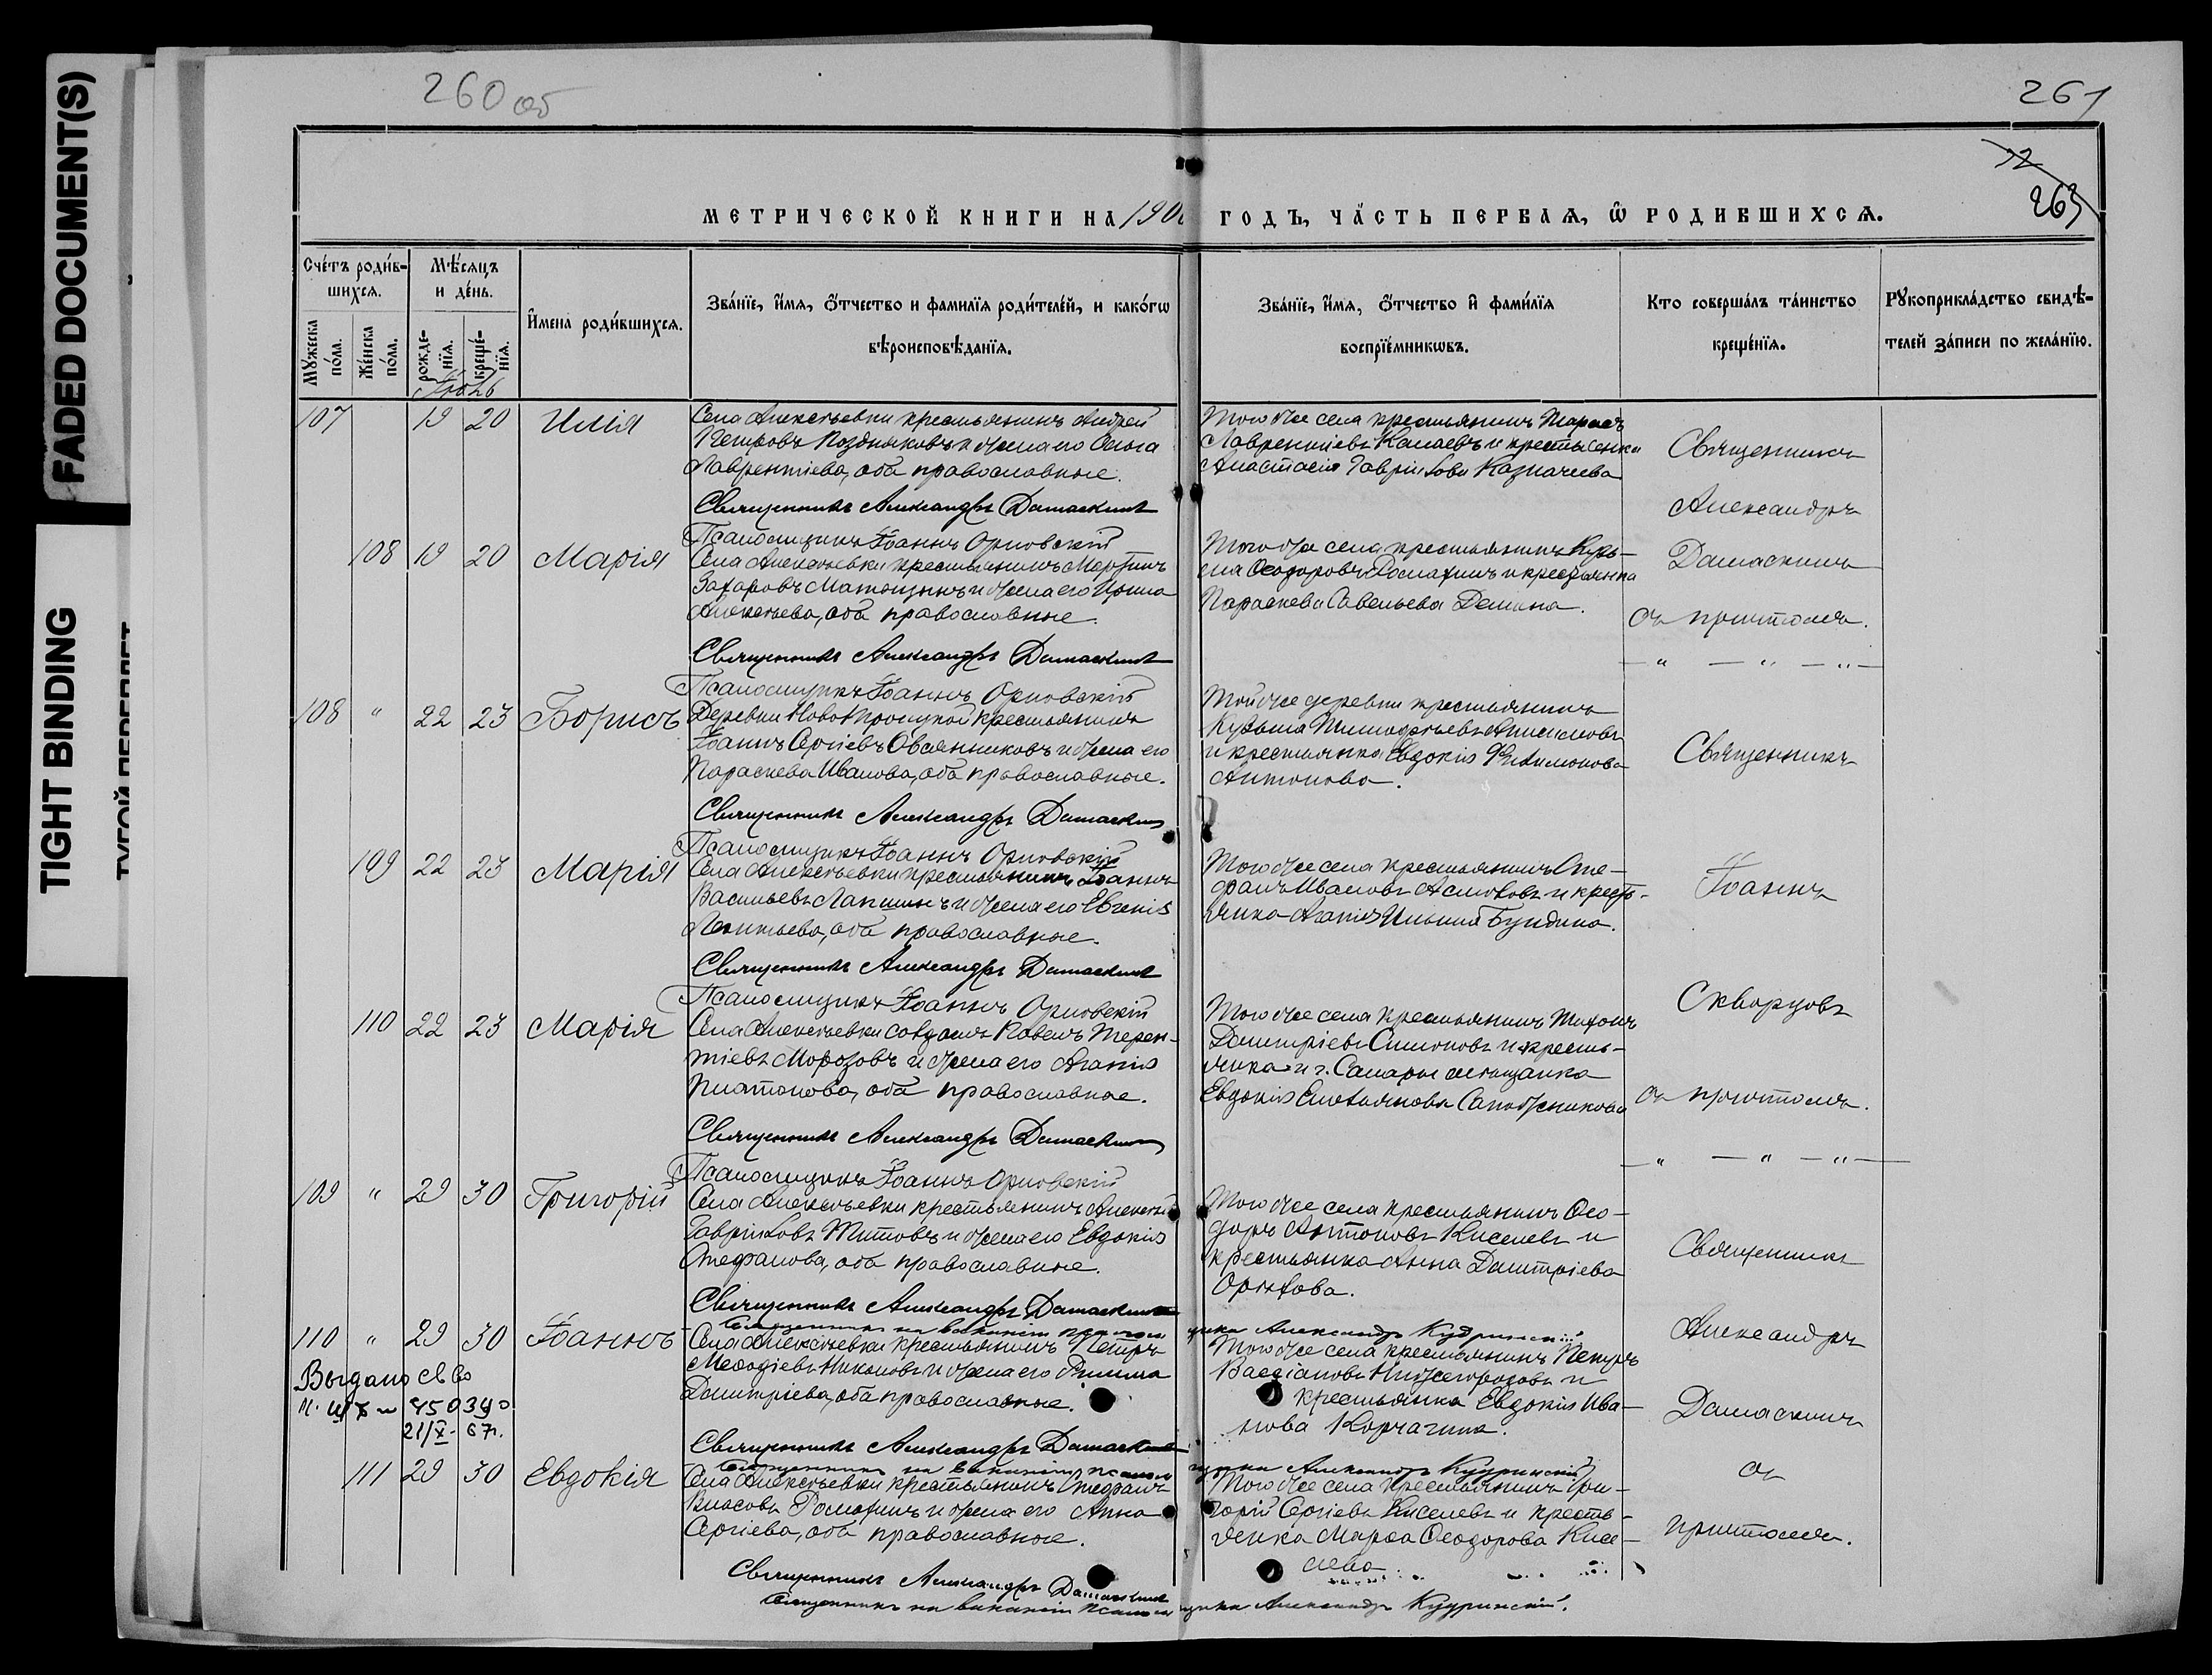 FADED DOCUMENT(S)
TIGHT BINDING
260 об
261
72
263
МЕТРИЧЕСКОЙ КНИГИ НА 190 ГОДЪ, ЧАСТЬ ПЕРВАЯ, Ѡ РОДИВШИХСЯ.
Счетъ родившихся.
Мужеска пола.
Женска пола.
Мѣсяцъ и день.
рожденія.
крещенія.
Имена родившихся.
Званіе, имя, отчество и фамилія родителей, и какогѡ
вѣроисповѣданія.
Званіе, имя, отчество и фамилія
воспріемникѡвъ.
Кто совершалъ таинство
крещенія.
Рукоприкладство свидѣ-
телей записи по желанію.
107 19 20 Илія
Села Алексѣевки крестьянинъ Андрей
Петровъ Поздняковъ и жена его Ольга
Лаврентіева, оба православные.
Священникъ Александръ Дамаскинъ
Псаломщикъ Іоаннъ Орловскій
Того же села крестьянинъ Тарасъ
Лаврентіевъ Калаевъ и крестьянка
Анастасія Гавріилова Казначеева
Священникъ
Александръ
Дамаскинъ
съ причтомъ.
108 19 20 Марія
Села Алексѣевки крестьянинъ Мартинъ
Захаровъ Матющинъ и жена его Ирина
Алексѣева, оба православные.
Священникъ Александръ Дамаскинъ
Псаломщикъ Іоаннъ Орловскій
Того же села крестьянинъ Кузь-
ма Ѳеодоровъ Ромахинъ и крестьянка
Параскева Савельева Демина.
— " — " — " —
108 " 22 23 Борисъ
Деревни крестьянинъ
Іоаннъ Сергіевъ Овсянниковъ и жена его
Параскева Иванова, оба православные.
Священникъ Александръ Дамаскинъ
Псаломщикъ Іоаннъ Орловскій
Той же деревни крестьянинъ
Кузьма Тимоѳеевъ Анисимовъ
и крестьянка Евдокія Филимонова
Антонова.
Священникъ
Іоаннъ
Скворцовъ
съ причтомъ.
109 22 23 Марія
Села Алексѣевки крестьянинъ Іоаннъ
Васильевъ Лапшинъ и жена его Евгенія
Леонтьева, оба православные.
Священникъ Александръ Дамаскинъ
Псаломщикъ Іоаннъ Орловскій
Того же села крестьянинъ Сте-
фанъ Ивановъ и кресть-
янка Агапія Ильина Бундина.
110 22 23 Марія
Села Алексѣевки солдатъ Павелъ Терен-
тіевъ Морозовъ и жена его Агапія
Платонова, оба православные.
Священникъ Александръ Дамаскинъ
Псаломщикъ Іоаннъ Орловскій
Того же села крестьянинъ Тихонъ
Димитріевъ Симоновъ и кресть-
янка и г. Самары мѣщанка
Евдокія Емельянова Сапожникова
— " — " — " —
109 " 29 30 Григорій
Села Алексѣевки крестьянинъ Алексѣй
Гавріиловъ Титовъ и жена его Евдокія
Стефанова, оба православные.
Священникъ Александръ Дамаскинъ
Священникъ на вакансіи псаломщика Александръ Кудринскій.
Того же села крестьянинъ Ѳео-
доръ Антоновъ Киселевъ и
крестьянка Анна Димитріева
Орлова.
Священникъ
Александръ
Дамаскинъ
съ
причтомъ.
110 " 29 30 Іоаннъ
Выдано св во
450390
21/X- 67г.
Села Алексѣевки крестьянинъ Петръ
Меѳодіевъ Никоновъ и жена его
Димитріева, оба православные.
Священникъ Александръ Дамаскинъ
Священникъ на вакансіи псаломщика Александръ Кудринскій
Того же села крестьянинъ Петръ
Вассіановъ Нижегородовъ и
крестьянка Евдокія Ива-
нова Корчагина.
111 29 30 Евдокія
Села Алексѣевки крестьянинъ Стефанъ
Власовъ Ромахинъ и жена его Анна
Сергіева, оба православные.
Священникъ Александръ Дамаскинъ
Священникъ на вакансіи псаломщика Александръ Кудринскій.
Того же села крестьянинъ Гри-
горій Сергіевъ Киселевъ и кресть-
янка Марѳа Ѳеодорова Кисе-
лева